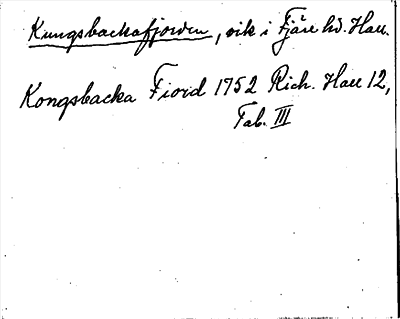 Kungsbackafjorden, vik i Fjäre hd. Hall.
Kongsbacka Fiord 1752 Rich. Hall 12,
Tab. III